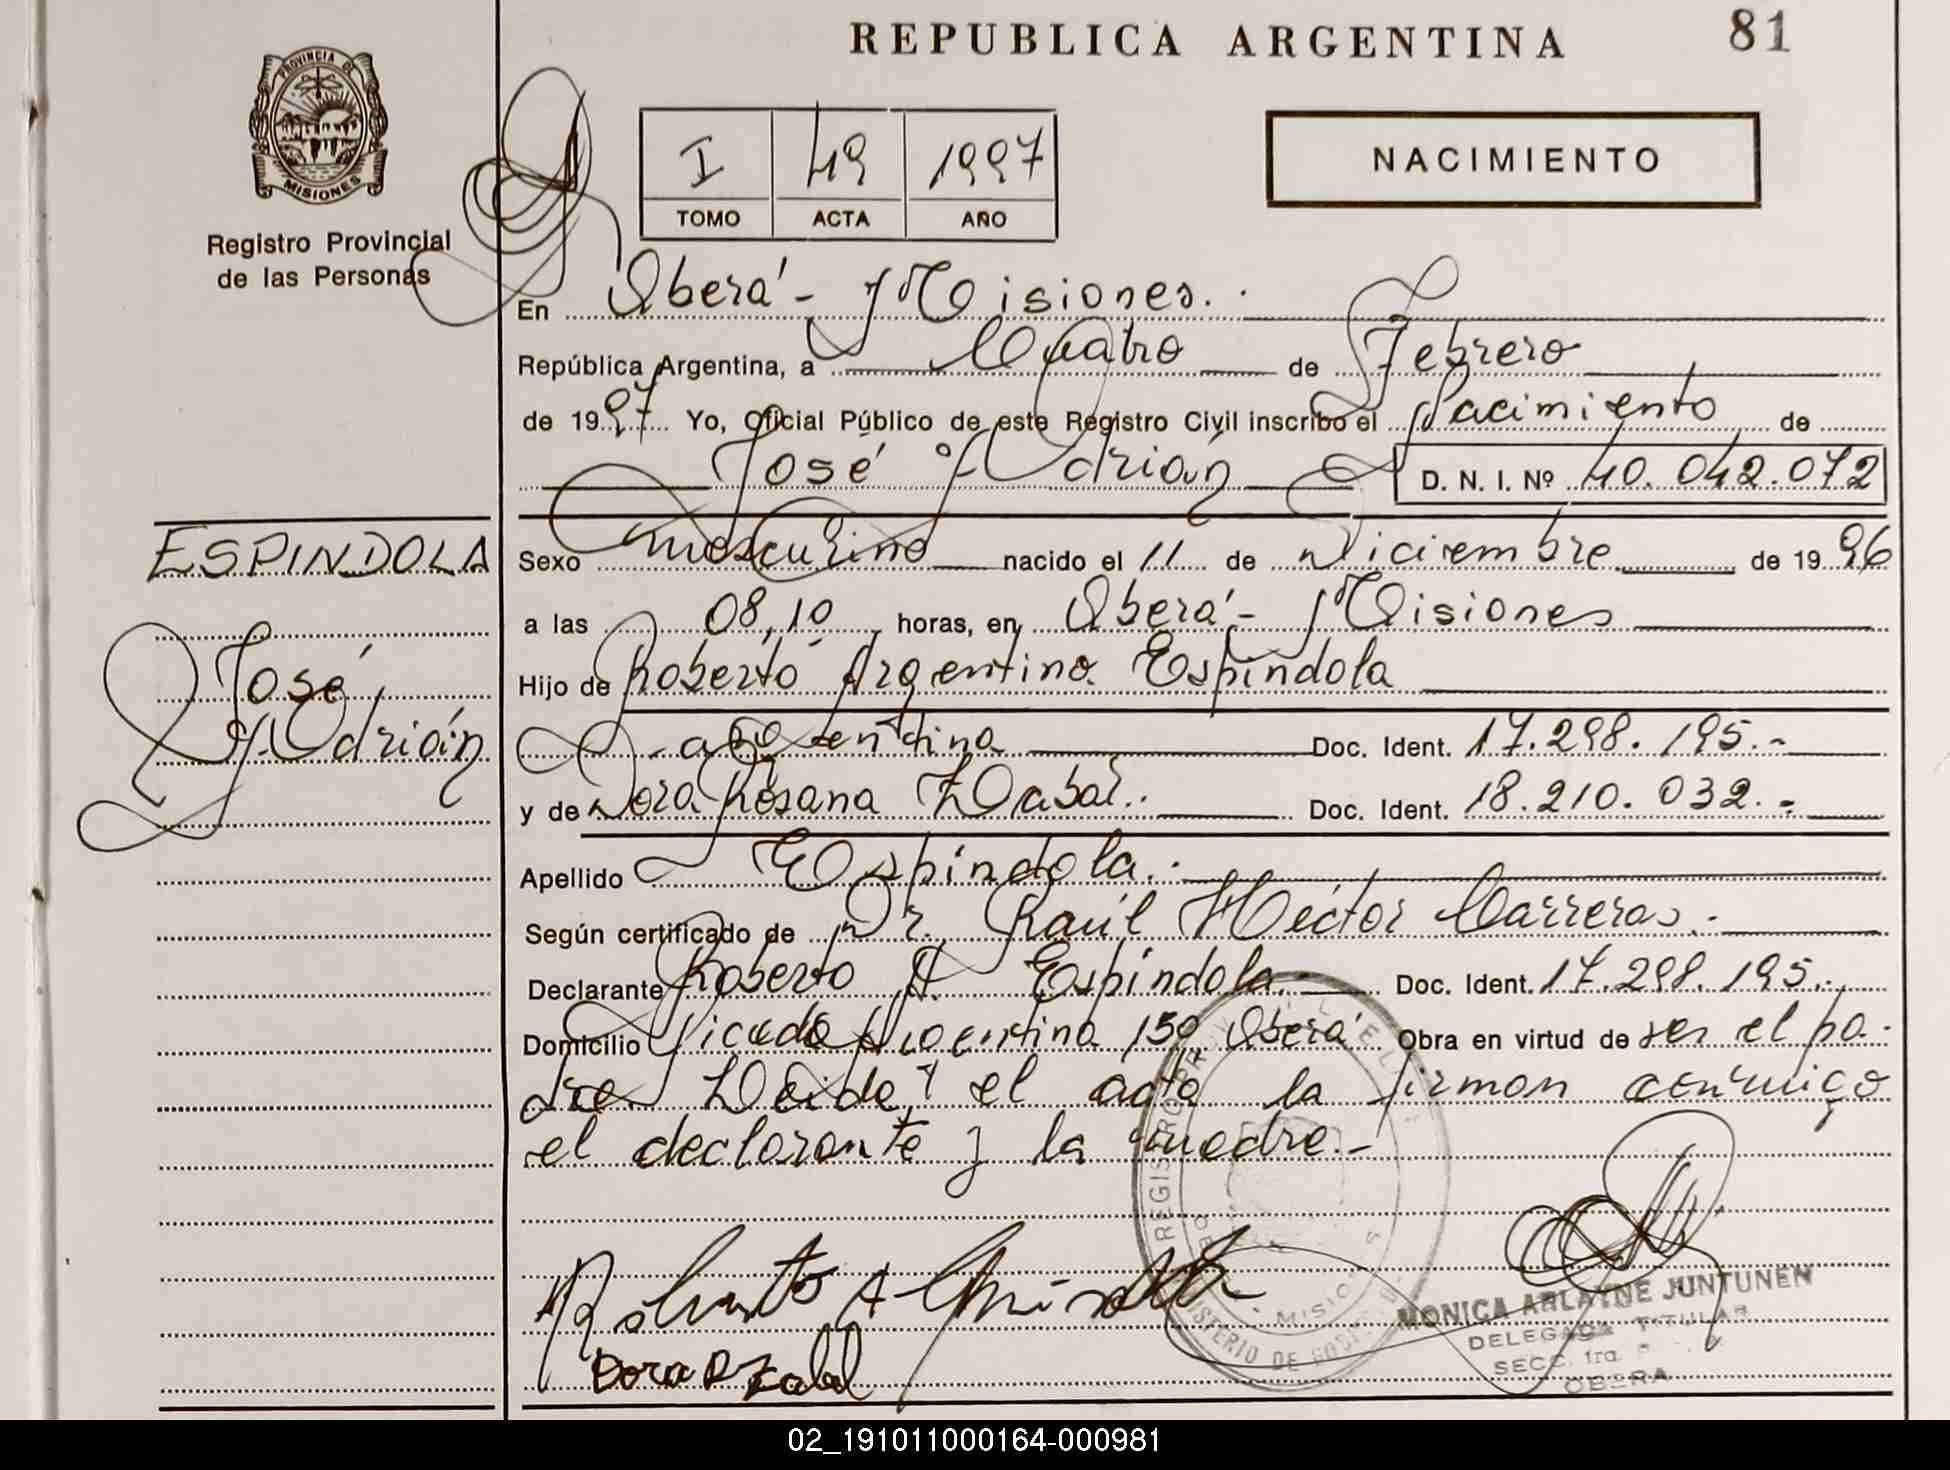 REPUBLICA ARGENTINA
81
PROVINCIA DE
MISIONES
Registro Provincial
de las Personas
I 49 1997
TOMO ACTA AÑO
NACIMIENTO
En Oberá - Misiones.
República Argentina, a Cuatro de Febrero
de 1997 Yo, Oficial Público de este Registro Civil inscribo el Nacimiento de
José Adrián D. N. I. Nº 40.042.072
ESPINDOLA
José
Adrián
Sexo masculino nacido el 11 de Diciembre de 1996
a las 08,10 horas, en Oberá - Misiones
Hijo de Roberto Argentino Espíndola
argentina Doc. Ident. 17.298.195.-
y de Dora Rosana Zabal.. Doc. Ident. 18.210.032.-
Apellido Espíndola.
Según certificado de Dr. Raúl Héctor Carreras.
Declarante Roberto A. Espíndola. Doc. Ident. 17.298.195.-
Domicilio Picada Argentina 150 Oberá Obra en virtud de ser el pa-
dre. Leída el acta la firman conmigo
el declarante y la madre.-
Roberto A
Dora R Zabal
MONICA ARLAYNE JUNTUNEN
DELEGADA TITULAR
SECC. 1ra.
OBERA
02_191011000164-000981